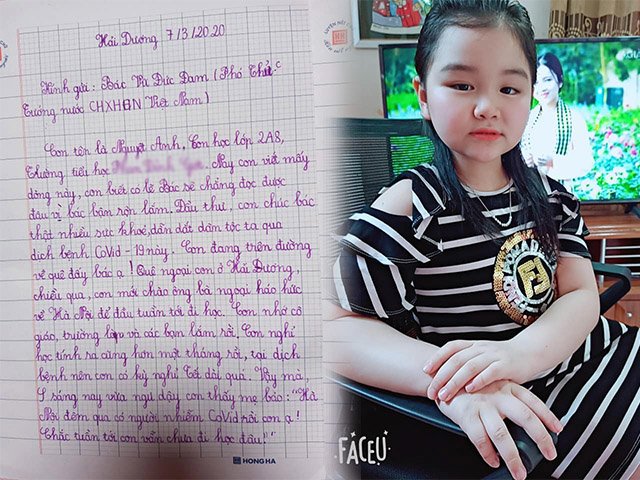 Hải Dương 7/3/2020
Kính gửi: Bác Vũ Đức Đam (Phó Thủ
Tướng nước CHXHCN Việt Nam)
Con tên là Nguyệt Anh, Con học lớp 2A8,
Trường tiểu học
Nay con viết mấy
dòng này, con biết có lẽ Bác sẽ chẳng đọc được
đâu vì bác bận rộn lắm. Đầu thư, con chúc bác
thật nhiều sức khoẻ, dẫn dắt dân tộc ta qua
dịch bệnh CoVid-19 này. Con đang trên đường
về quê đấy bác ạ! Quê ngoại con ở Hải Dương,
chiều qua, con mới chào ông bà ngoại háo hức
về Hà Nội để đầu tuần tới đi học. Con nhớ cô
giáo, trường lớp và các bạn lắm rồi. Con nghỉ
học tính ra cũng hơn một tháng rồi, tại dịch
bệnh nên con có kỳ nghỉ Tết dài quá. Vậy mà
sáng nay vừa ngủ dậy con thấy mẹ bảo: "Hà
Nội đêm qua có người nhiễm CoVid rồi con ạ!
Chắc tuần tới con vẫn chưa đi học đâu!"
HONG HA
FACEU